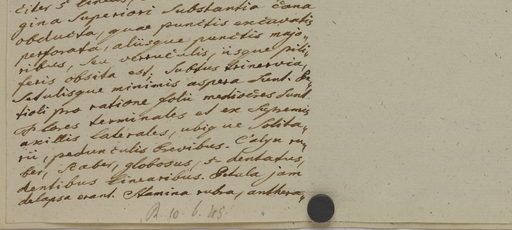 citer & lineis,
gina superiori substantia cana
obducta, quae punctis excavati
perforata, aliisque punctis majo-
ribus, seu verruculis, iisque pili-
feris obsita est. Subtus trinervia,
Setulisque minimis aspera sunt. Pe-
tioli pro ratione folii mediocres sunt
Flores terminales et ex supremis
axillis laterales, ubique solita-
rii, pedunculis brevibus. Calyx ru-
ber, scaber, globosus, 5 dentatus,
dentibus linearibus. Petala jam
delapsa erant. Stamina rubra, anthera-
R. 10. 6. 45.